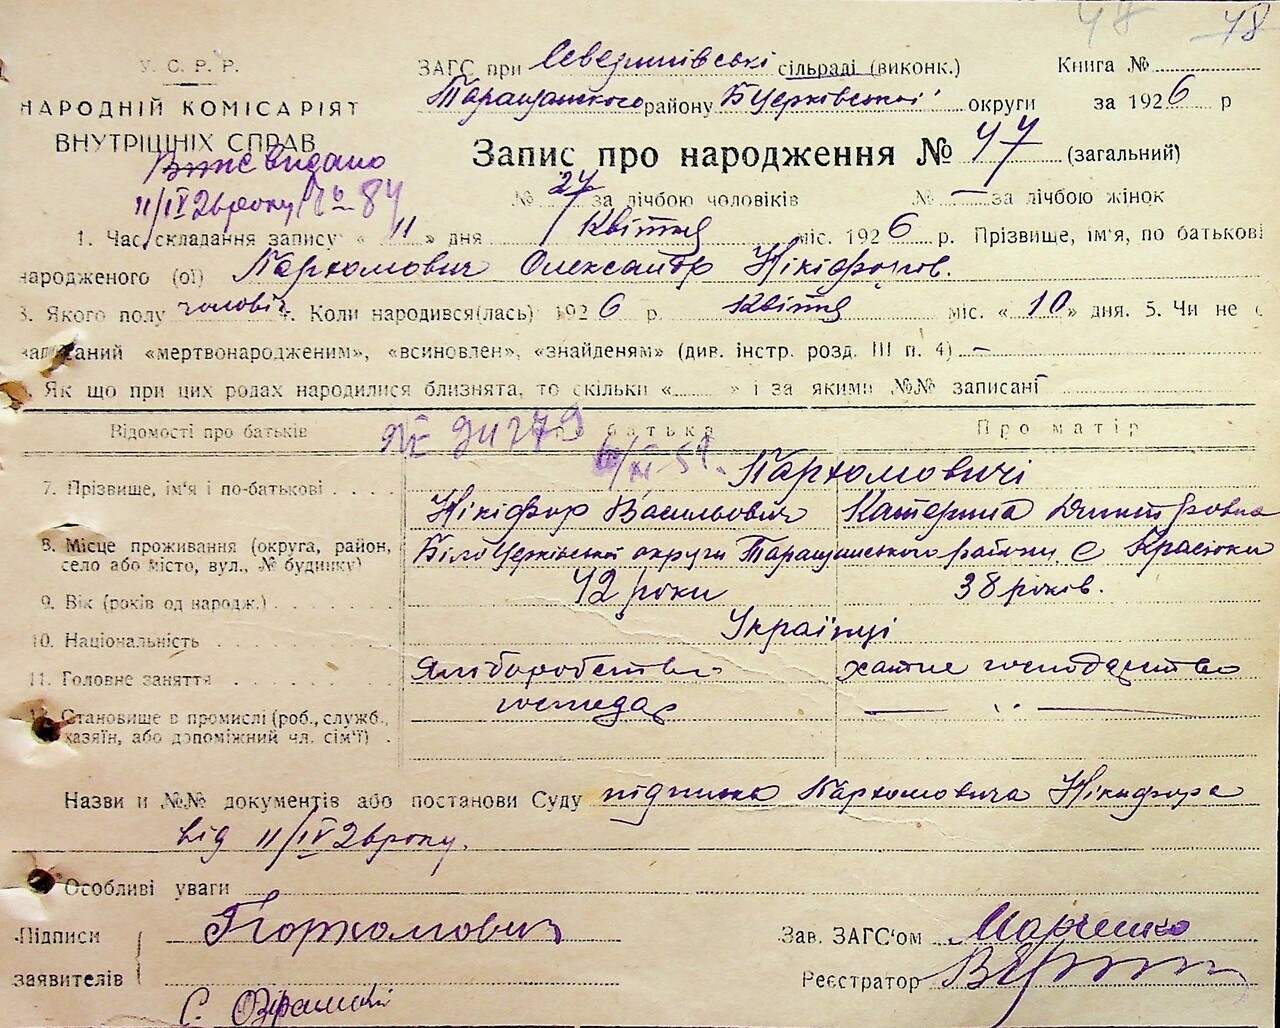 48 48
У. С. Р. Р.
НАРОДНІЙ КОМІСАРІЯТ
ВНУТРІШНІХ СПРАВ
Вже видано
11/IV 26 року № 84
ЗАГС при Северинівські сільраді (виконк.) Книга №
Таращанского району Б Церківської округи за 1926 р
Запис про народження № 47 (загальний)
№ 27 за лічбою чоловіків № — за лічбою жінок
1. Час складання запису « 11 » дня Квітня міс. 1926 р. Прізвище, ім'я, по батькові
народженого (ої) Пархомович Олександр Нікіфоров.
3. Якого полу чоловіч. 4. Коли народився(лась) 1926 р. Квітня міс. « 10 » дня. 5. Чи не є
записаний «мертвонародженим», «всиновлен», «знайденям» (див. інстр. розд. III п. 4) —
Як що при цих родах народилися близнята, то скільки « » і за якими №№ записані
Відомості про батьків Про батька Про матір
7. Прізвище, ім'я і по-батькові Пархомовичі
Нікіфор Васильович Катерина Дмитровна
8. Місце проживання (округа, район, село або місто, вул., № будинку) Білоцерківської округи Таращанського району с
9. Вік (років од народж.) 42 роки 38 років.
10. Національність Українці
11. Головне заняття хатнє господарство
12. Становище в промислі (роб., служб., хазяїн, або допоміжний чл. сім'ї) господар — ·· —
Назви и №№ документів або постанови Суду підписка Пархомовича Нікифора
від 11/IV 26 року.
Особливі уваги
Підписи заявителів Пархомович
Зав. ЗАГС'ом Марченко
Реєстратор